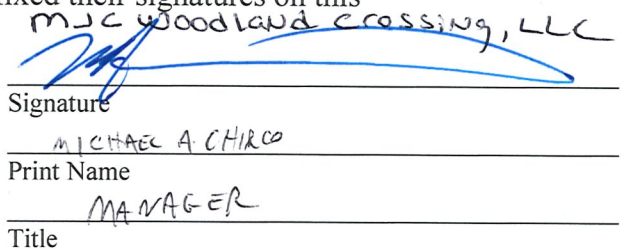 fixed their signatures on this
MJC Woodland Crossing, LLC
Signature
MICHAEL A. CHIRCO
Print Name
MANAGER
Title